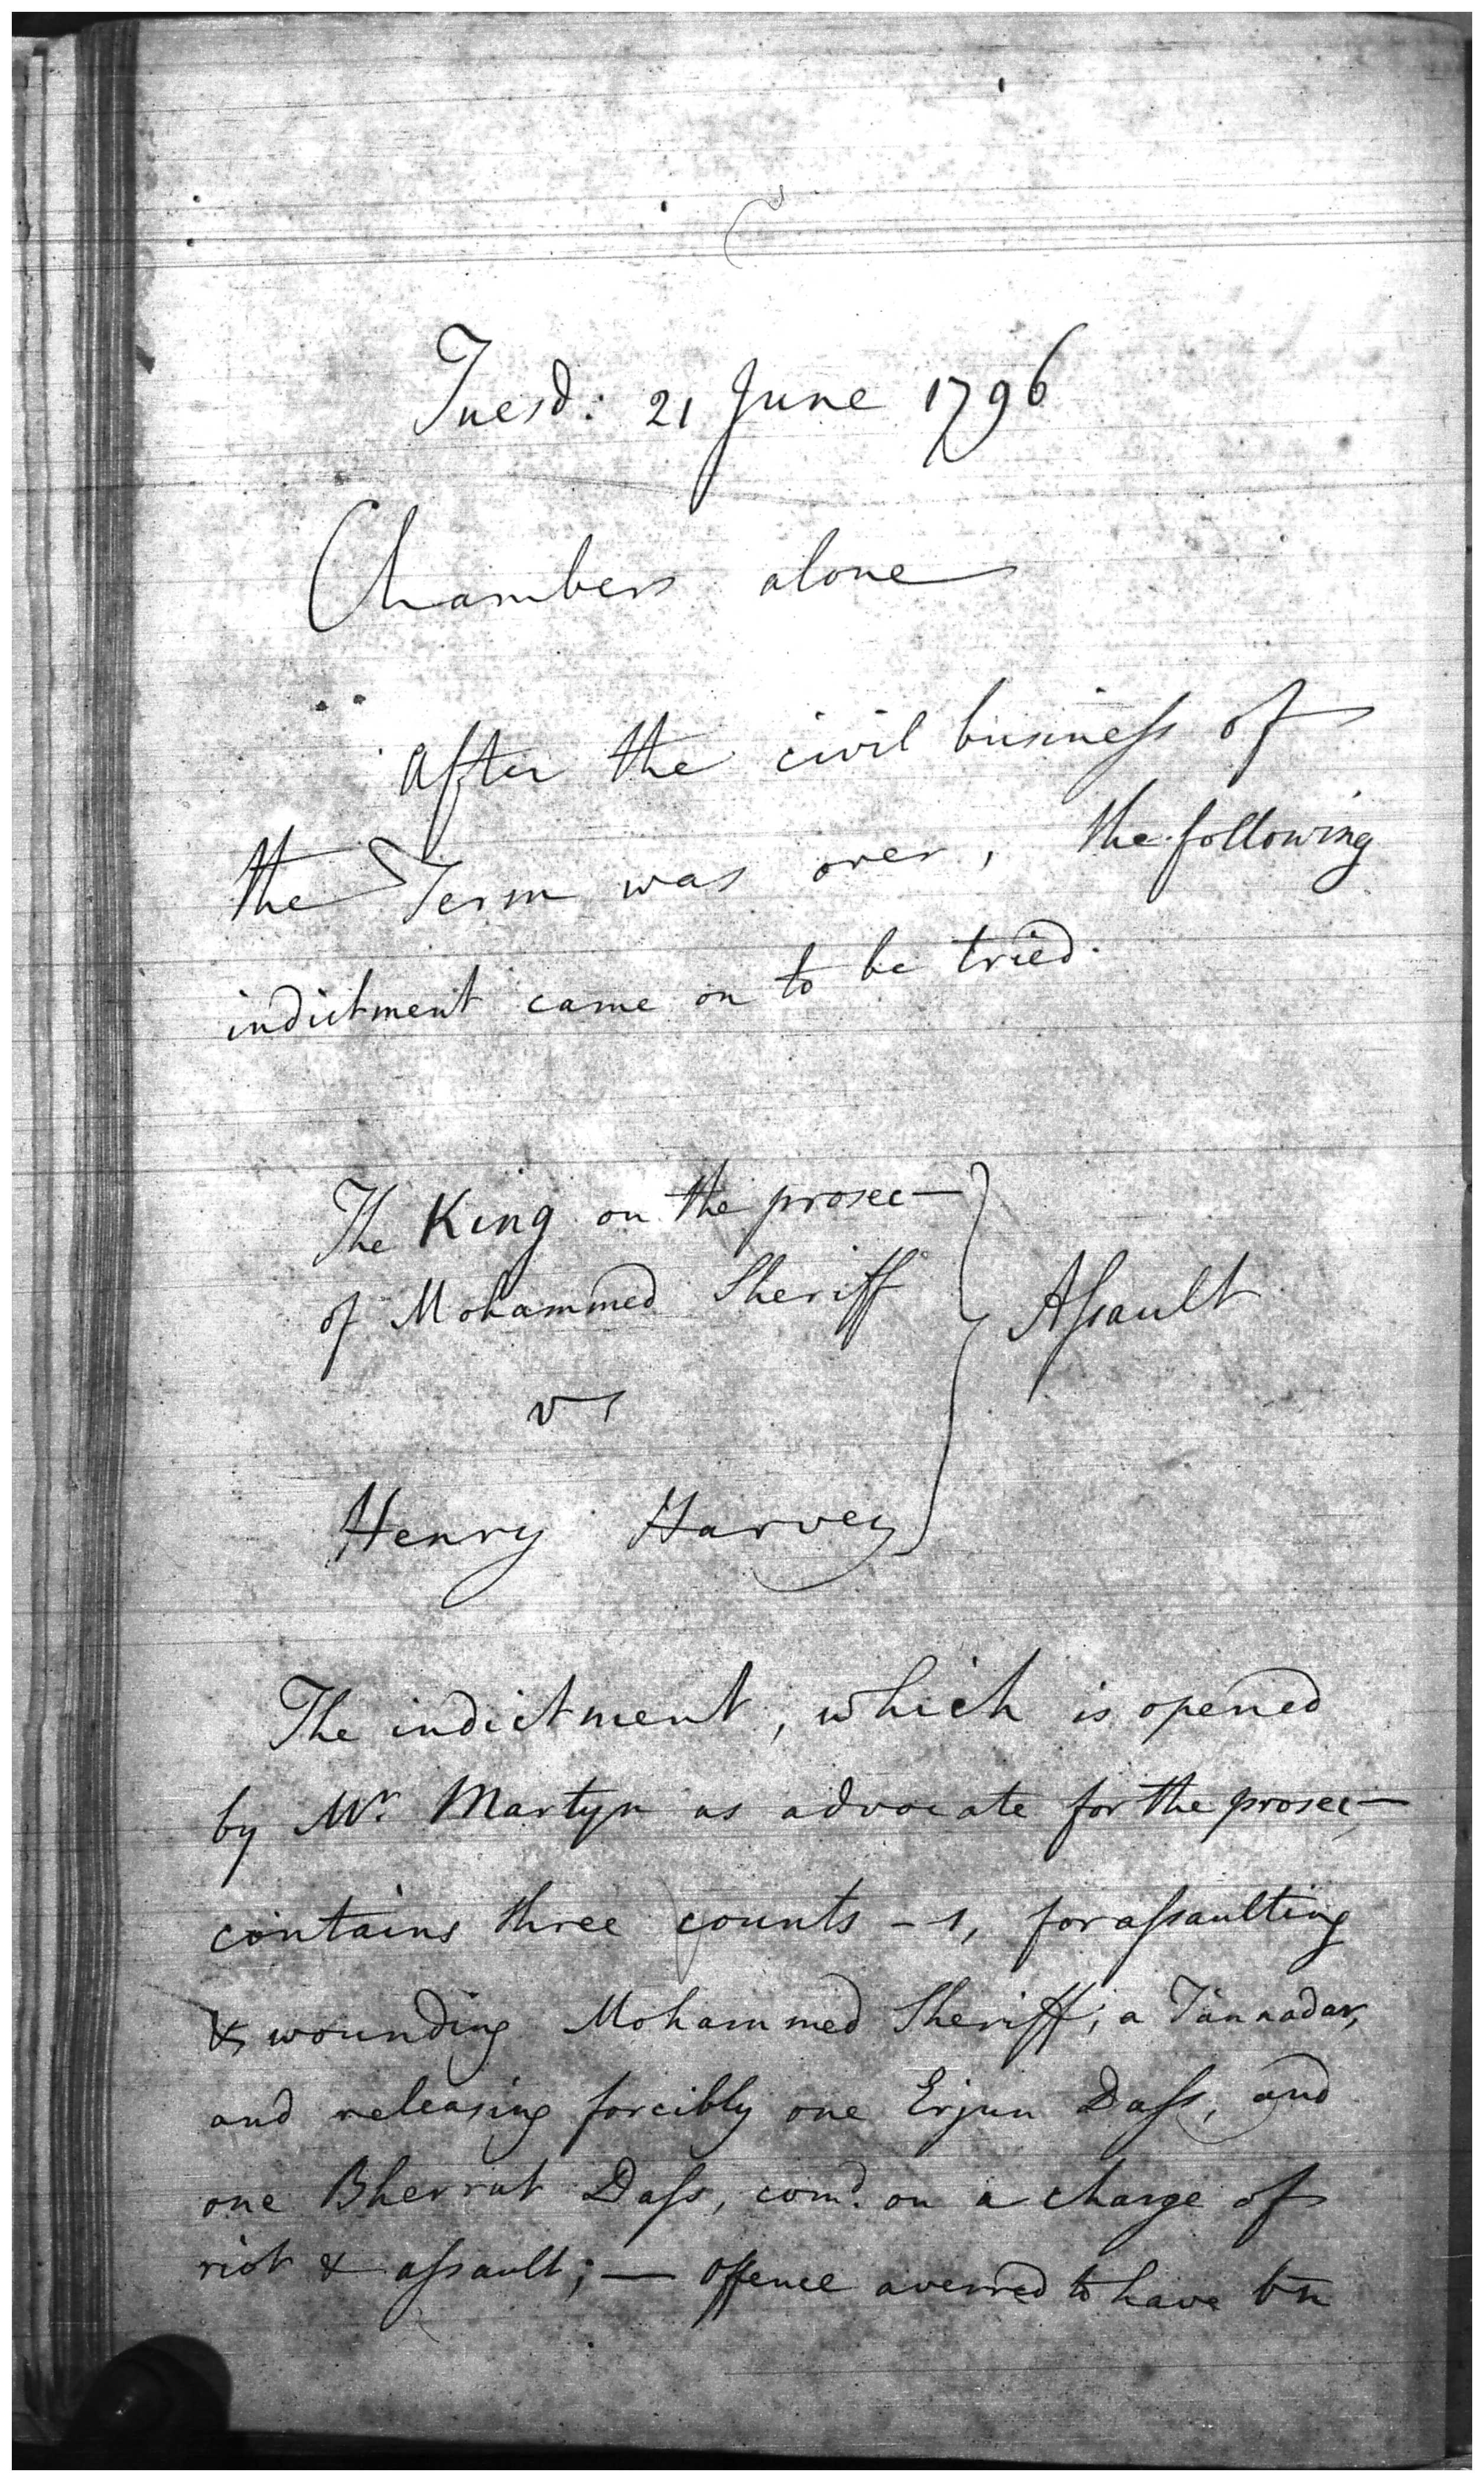 Tuesd: 21 June 1796
Chambers alone
After the civil business of
the Term was over, the following
indictment came on to be tried.
The King on the prosec—
of Mohammed Sheriff
Assault
vs
Henry Harvey
The indictment, which is opened
by Mr Martyn as advocate for the prosec—
contains three counts - 1, for assaulting
& wounding Mohammed Sheriff, a Tannadar,
and releasing forcibly one Erjun Dass, and
one Bherrut Dass, comd. on a charge of
riot & assault; — offence averred to have bn